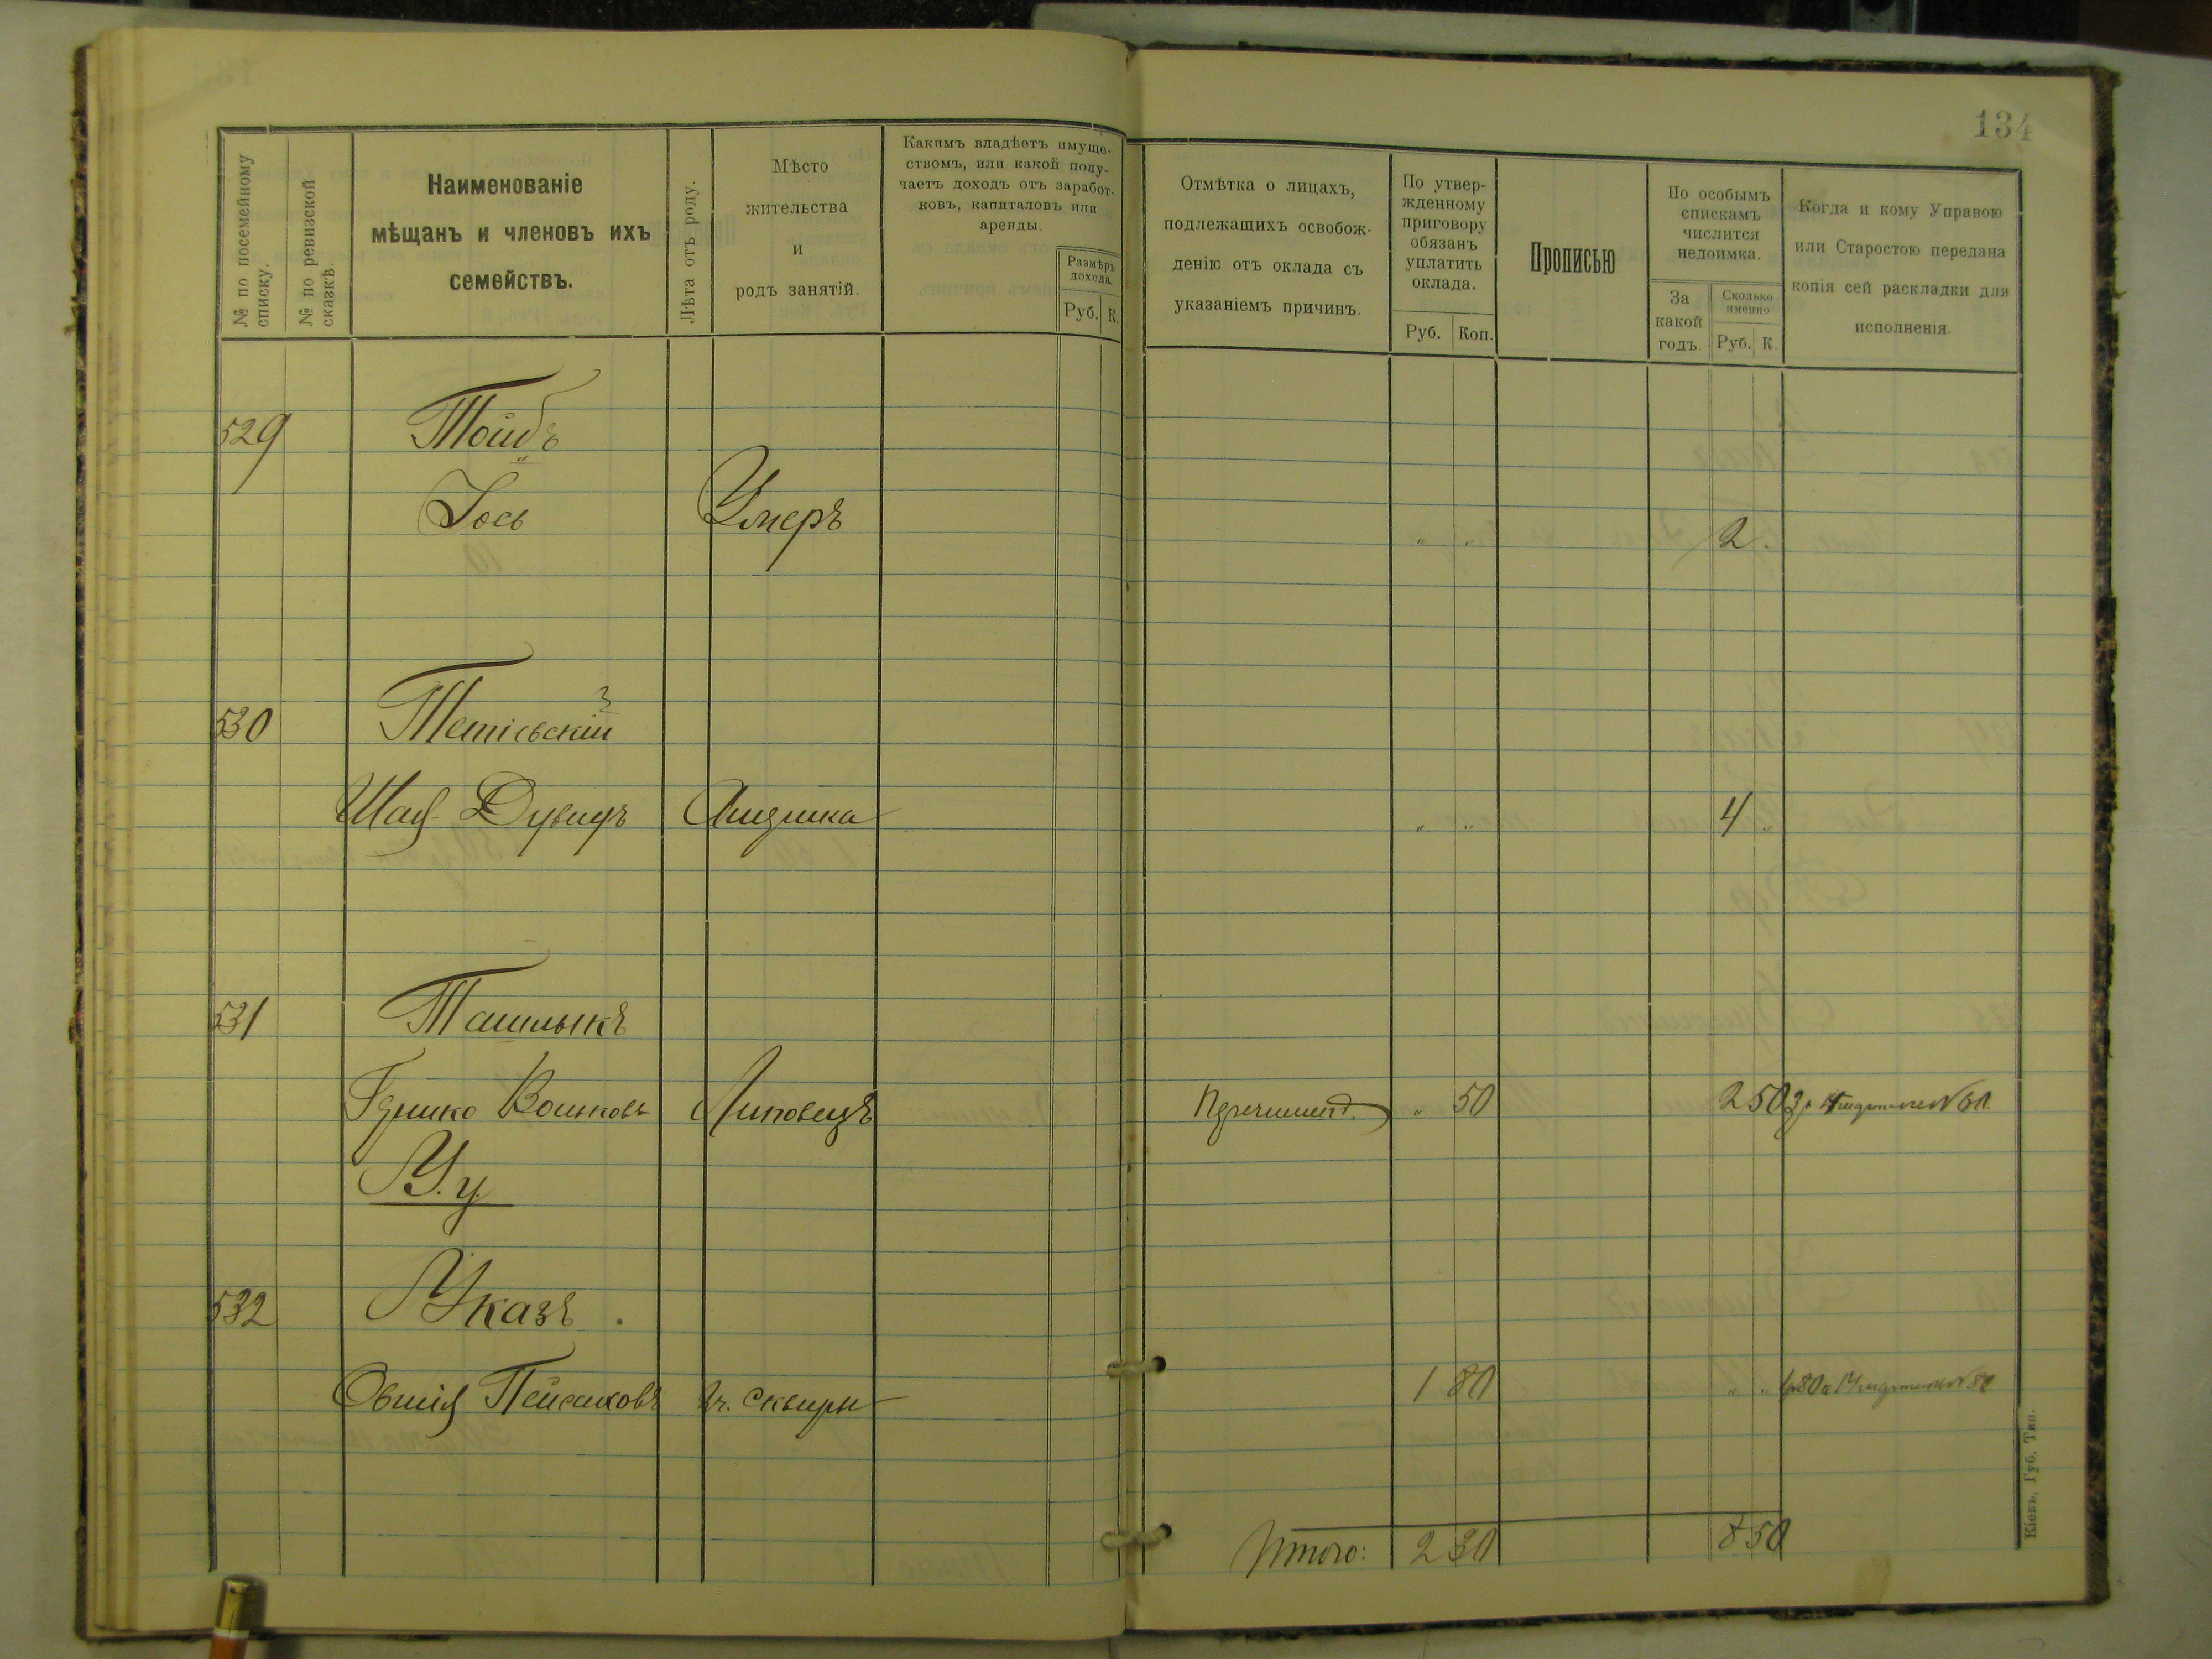 134
№ по посемейному списку.
№ по ревизской сказкѣ.
Наименованіе
мѣщанъ и членовъ ихъ
семействъ.
Лѣта отъ роду.
Мѣсто
жительства
и
родъ занятій.
Какимъ владѣетъ имуще-
ствомъ, или какой полу-
чаетъ доходъ отъ заработ-
ковъ, капиталовъ или
аренды.
Размѣръ
дохода.
Руб. К.
Отмѣтка о лицахъ,
подлежащихъ освобож-
денію отъ оклада съ
указаніемъ причинъ.
По утвер-
жденному
приговору
обязанъ
уплатить
оклада.
Руб. Коп.
Прописью
По особымъ
спискамъ
числится
недоимка.
За
какой
годъ.
Сколько
именно
Руб. К.
Когда и кому Управою
или Старостою передана
копія сей раскладки для
исполненія.
529 Тойбъ
Іось Умеръ „ „ 2 .
530 Тетіевскій
Дувидъ „ „ 4 „
531 Ташлыкъ
Вольковъ Липовецъ „ 50 2 50
У.у.
532 Указъ .
Овшія Пейсаховъ г. Сквиры 1 80 „ „
Итого: 2 30 8 50
Кіевъ, Губ. Тип.